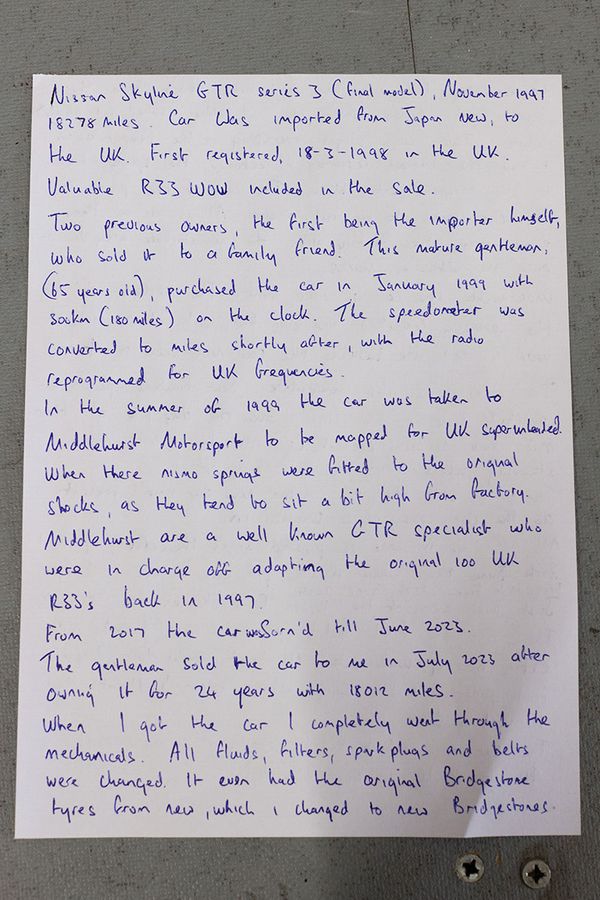 Nissan Skyline GTR series 3 (final model), November 1997
18278 miles. Car was imported from Japan new, to
the UK. First registered, 18-3-1998 in the UK.
Valuable R33 WOW included in the sale.
Two previous owners, the first being the importer himself,
who sold it to a family friend. This mature gentleman,
(65 years old), purchased the car in January 1999 with
300km (180 miles) on the clock. The speedometer was
converted to miles shortly after, with the radio
reprogrammed for UK frequencies.
In the summer of 1999 the car was taken to
Middlehurst Motorsport to be mapped for UK superunleaded.
When there nismo springs were fitted to the original
shocks, as they tend to sit a bit high from factory.
Middlehurst are a well known GTR specialist who
were in charge off adapting the original 100 UK
R33's back in 1997.
From 2017 the car was Sorn'd till June 2023.
The gentleman sold the car to me in July 2023 after
owning it for 24 years with 18012 miles.
When I got the car I completely went through the
mechanicals. All fluids, filters, spark plugs and belts
were changed. It even had the original Bridgestone
tyres from new, which i changed to new Bridgestones.